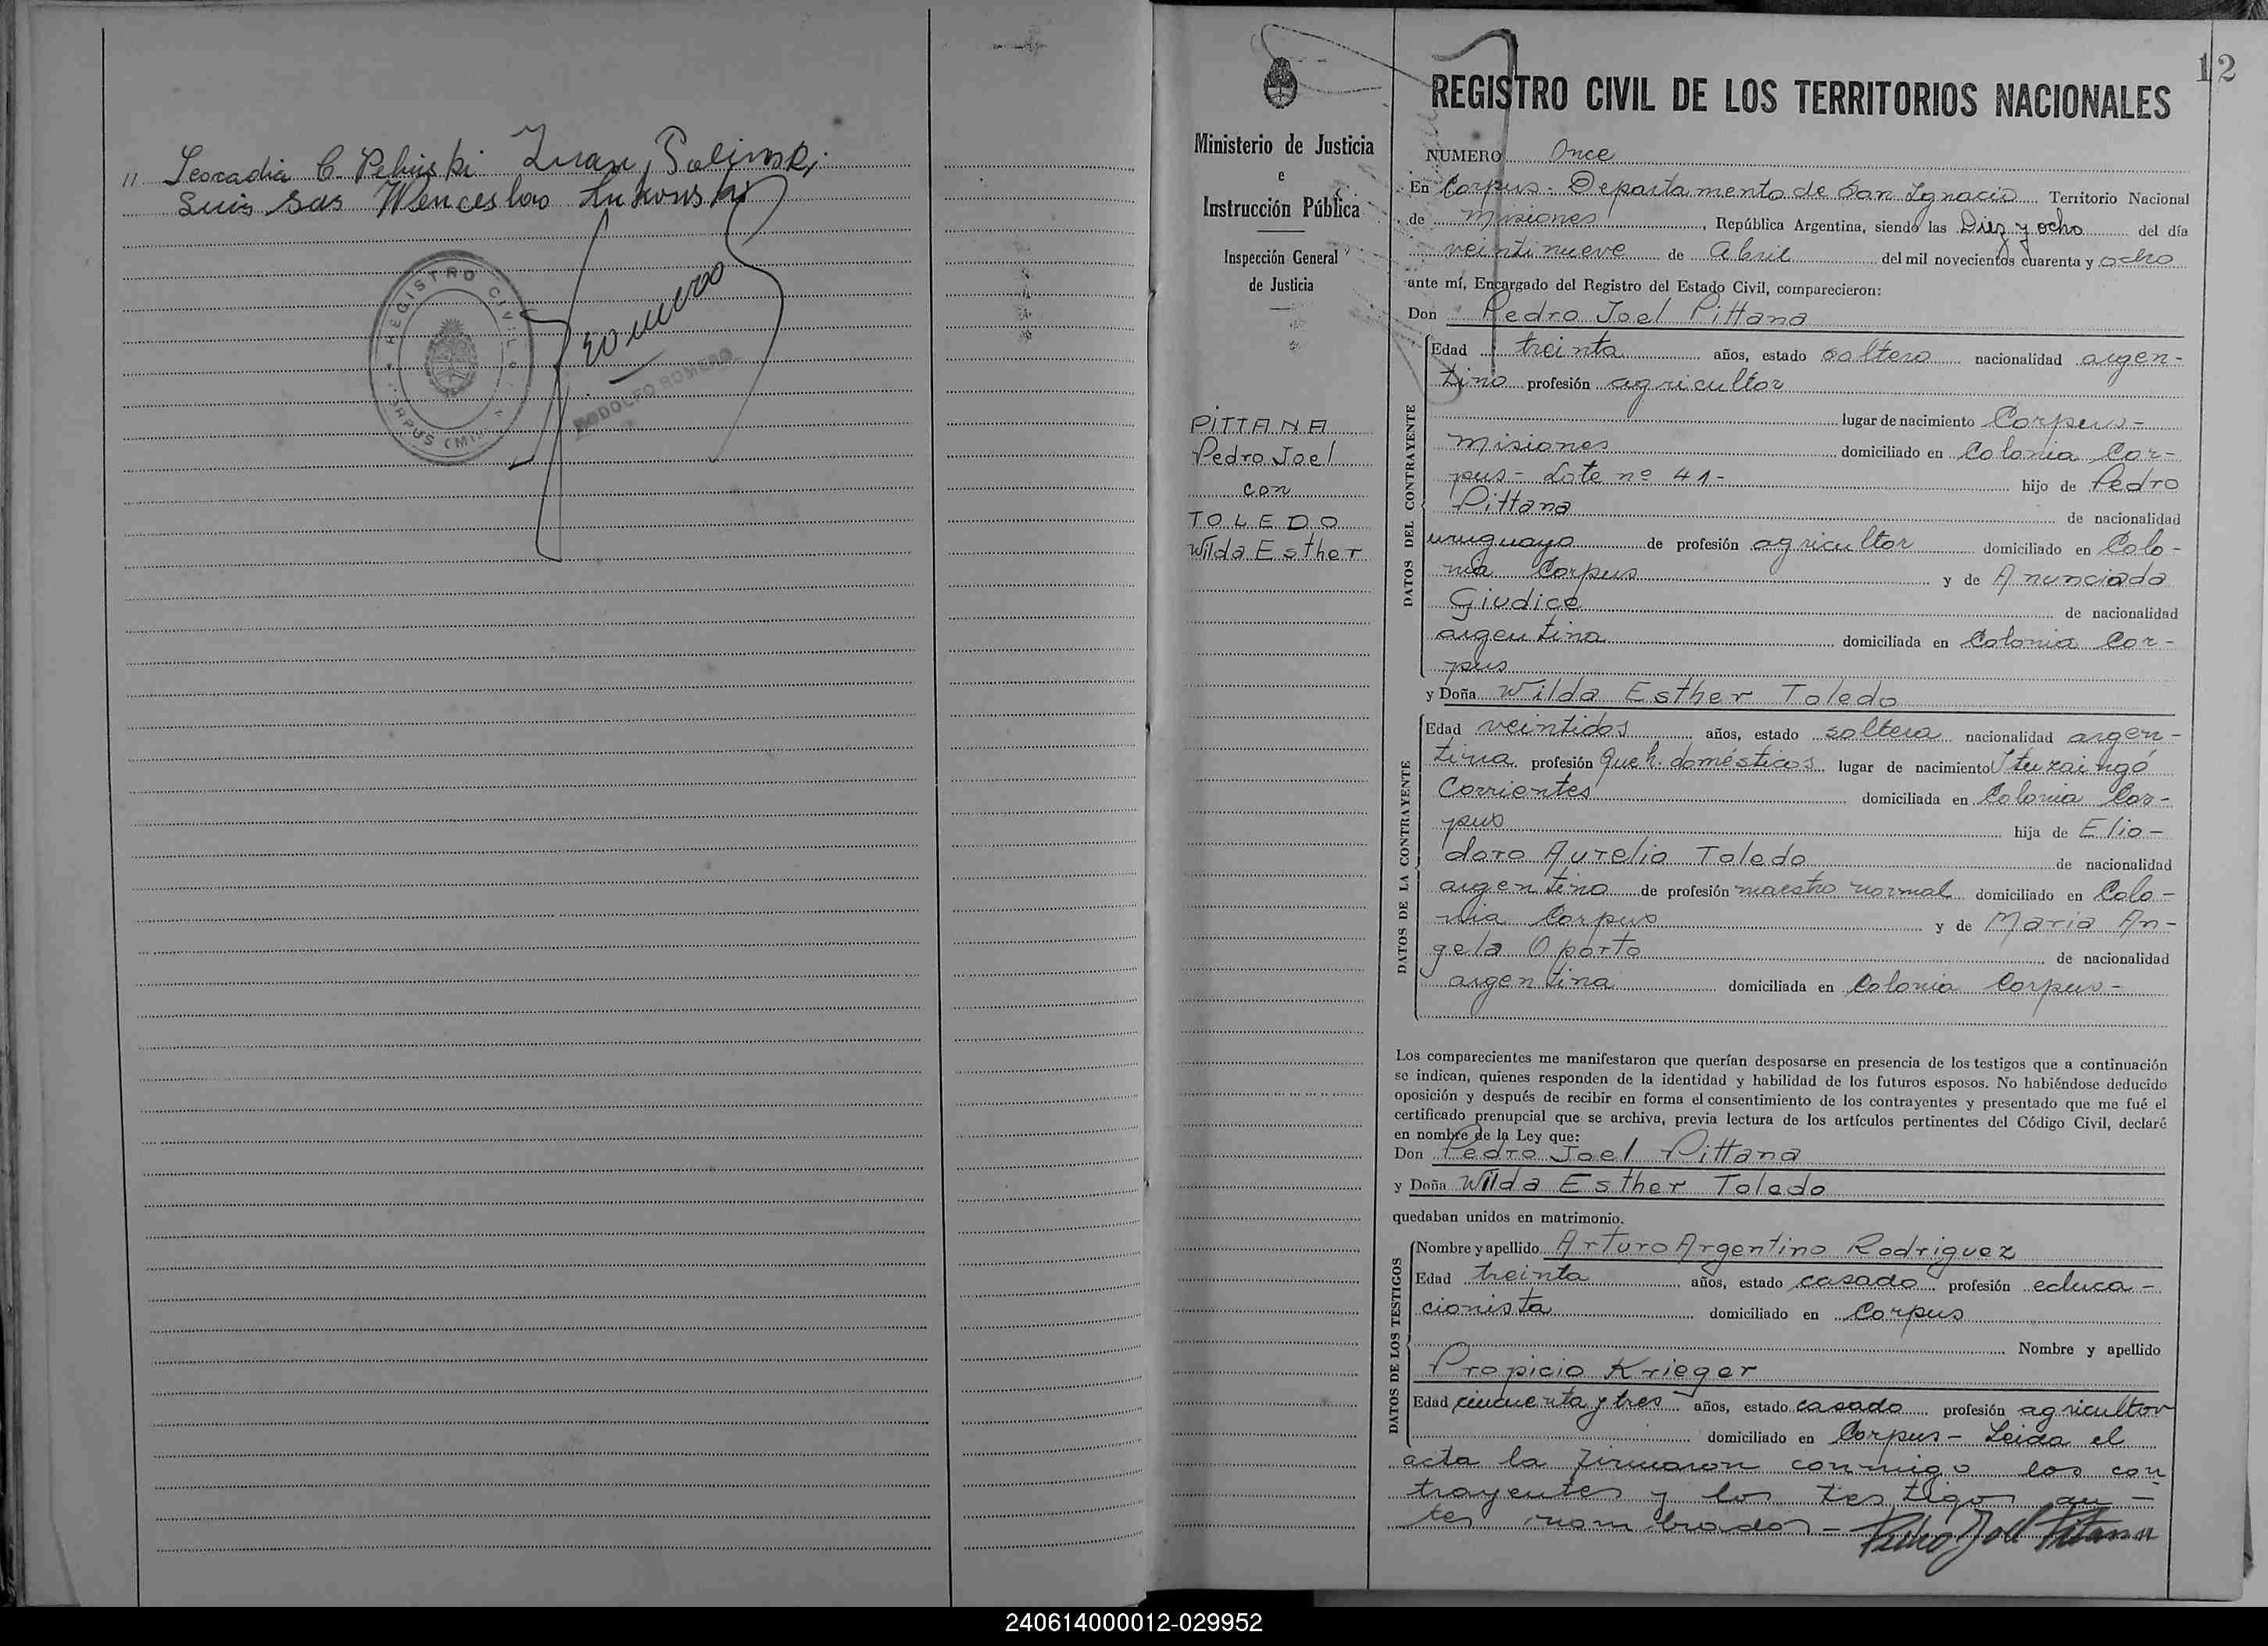 " Leocadia C. Peliuski Juan Salinski
Luis Sas Wenceslao
REGISTRO CIVIL
CORPUS (Mis
Romero
RODOLFO ROMERO
12
Ministerio de Justicia
e
Instrucción Pública
Inspección General
de Justicia
PITTANA
Pedro Joel
con
TOLEDO
Wilda Esther
REGISTRO CIVIL DE LOS TERRITORIOS NACIONALES
NUMERO Once
En Corpus - Departamento de San Ignacio Territorio Nacional
de Misiones, República Argentina, siendo las Diez y ocho del día
veintinueve de Abril del mil novecientos cuarenta y ocho
ante mí, Encargado del Registro del Estado Civil, comparecieron:
Don Pedro Joel Pittana
DATOS DEL CONTRAYENTE
Edad treinta años, estado soltero nacionalidad argen-
tino profesión agricultor
lugar de nacimiento Corpus-
Misiones domiciliado en Colonia Cor-
pus- Lote nº 41- hijo de Pedro
Pittana de nacionalidad
uruguayo de profesión agricultor domiciliado en Colo-
nia Corpus y de Anunciada
Giudice de nacionalidad
argentina domiciliada en Colonia Cor-
pus
y Doña Wilda Esther Toledo
DATOS DE LA CONTRAYENTE
Edad veintidos años, estado soltera nacionalidad argen-
tina profesión Queh. domésticos lugar de nacimiento Ituzaingó
Corrientes domiciliada en Colonia Cor-
pus hija de Elio-
doro Aurelio Toledo de nacionalidad
argentino de profesión maestro normal domiciliado en Colo-
nia Corpus y de Maria An-
gela Oporto de nacionalidad
argentina domiciliada en Colonia Corpus-
Los comparecientes me manifestaron que querían desposarse en presencia de los testigos que a continuación
se indican, quienes responden de la identidad y habilidad de los futuros esposos. No habiéndose deducido
oposición y después de recibir en forma el consentimiento de los contrayentes y presentado que me fué el
certificado prenupcial que se archiva, previa lectura de los artículos pertinentes del Código Civil, declaré
en nombre de la Ley que:
Don Pedro Joel Pittana
y Doña Wilda Esther Toledo
quedaban unidos en matrimonio.
DATOS DE LOS TESTIGOS
Nombre y apellido Arturo Argentino Rodriguez
Edad treinta años, estado casado profesión educa-
cionista domiciliado en Corpus
Nombre y apellido
Propicio Krieger
Edad cincuenta y tres años, estado casado profesión agricultor
domiciliado en Corpus- Leida el
acta la firmaron conmigo los con
trayentes y los testigos an-
tes nombrados- Pedro Joel Pittana
240614000012-029952